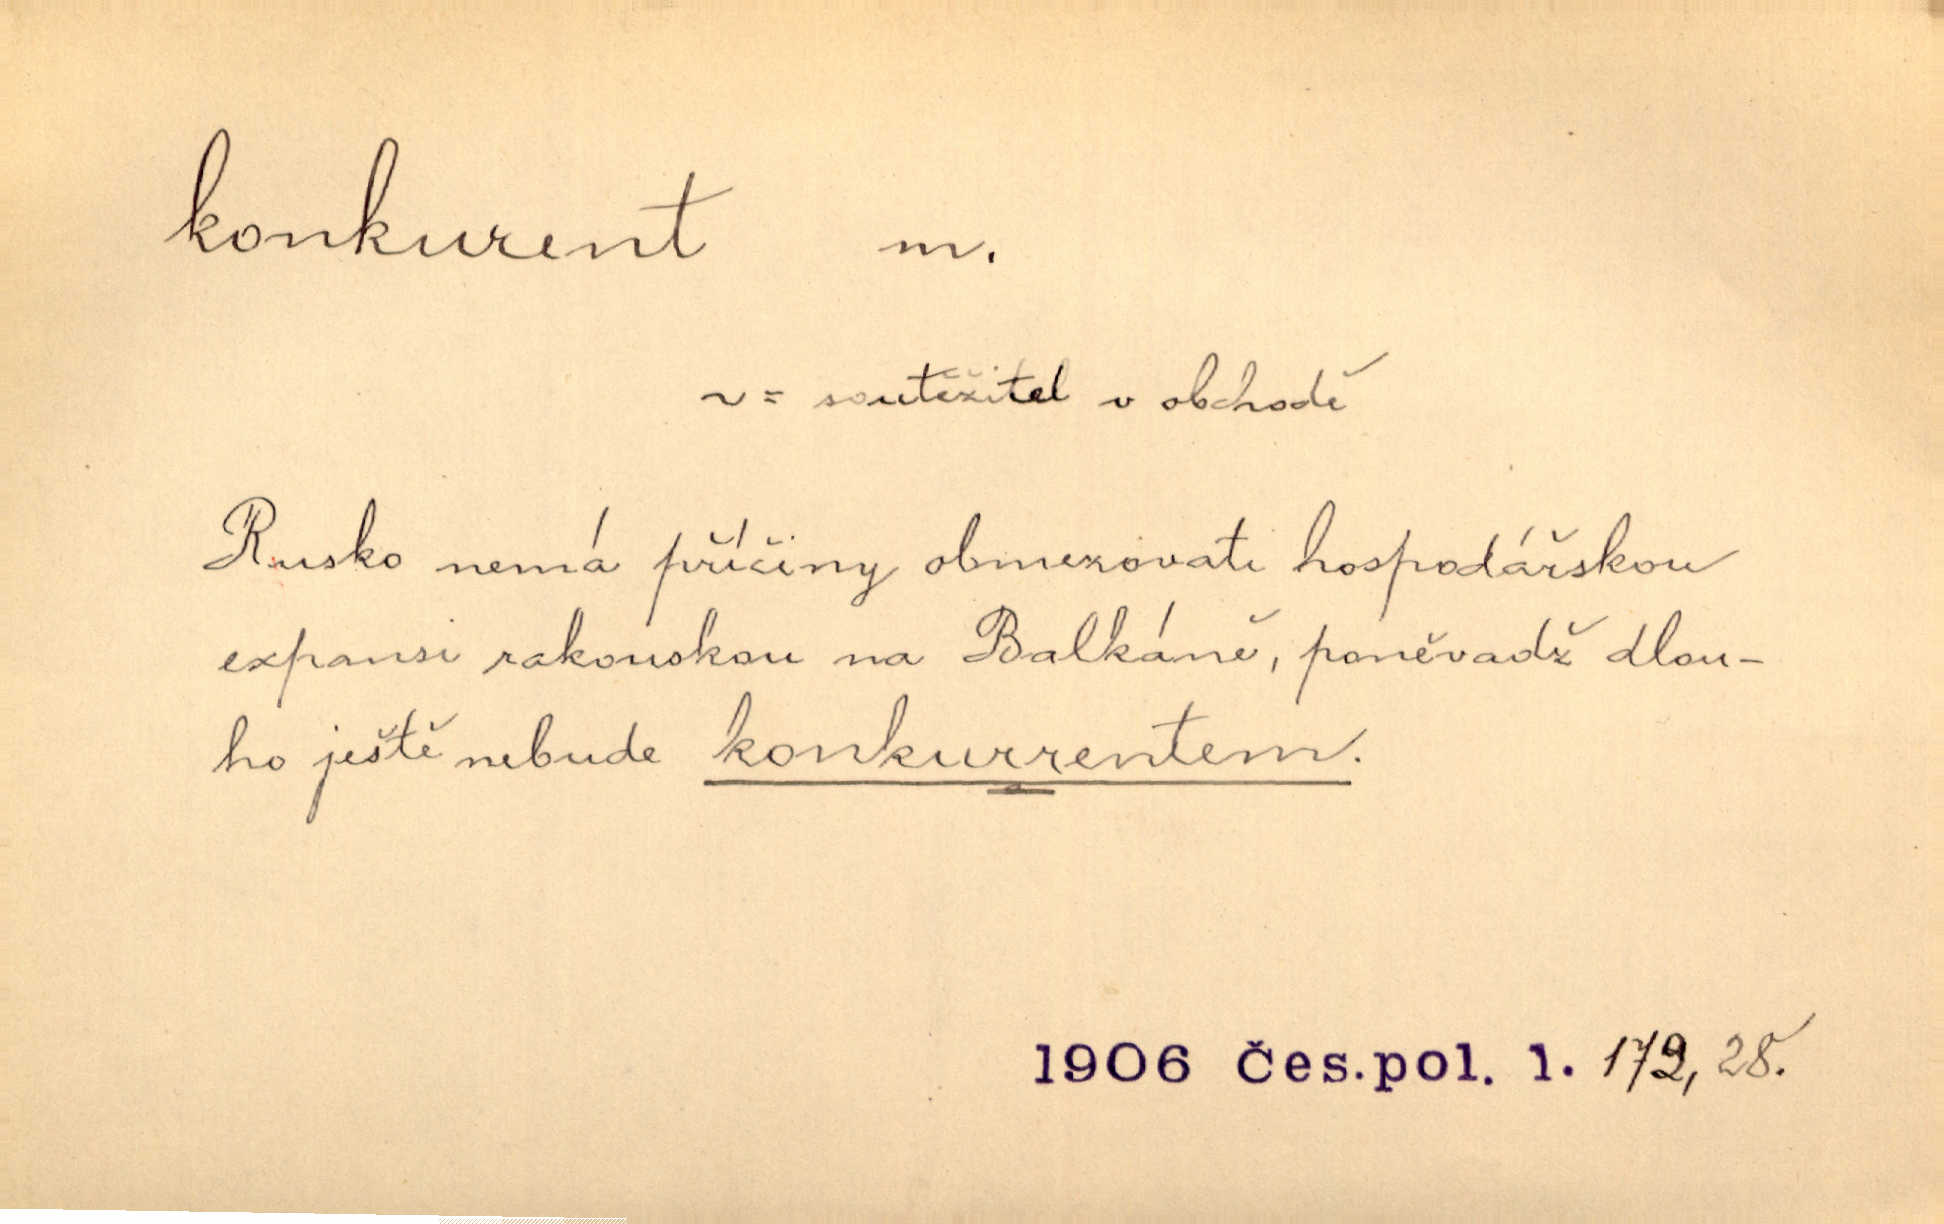 konkurent m.
~ = soutěžitel v obchodě
Rusko nemá příčiny obmezovati hospodářskou
expansi rakouskou na Balkáně, poněvadž dlou-
ho ještě nebude konkurrentem.
1906 Čes.pol. 1. 172, 28.